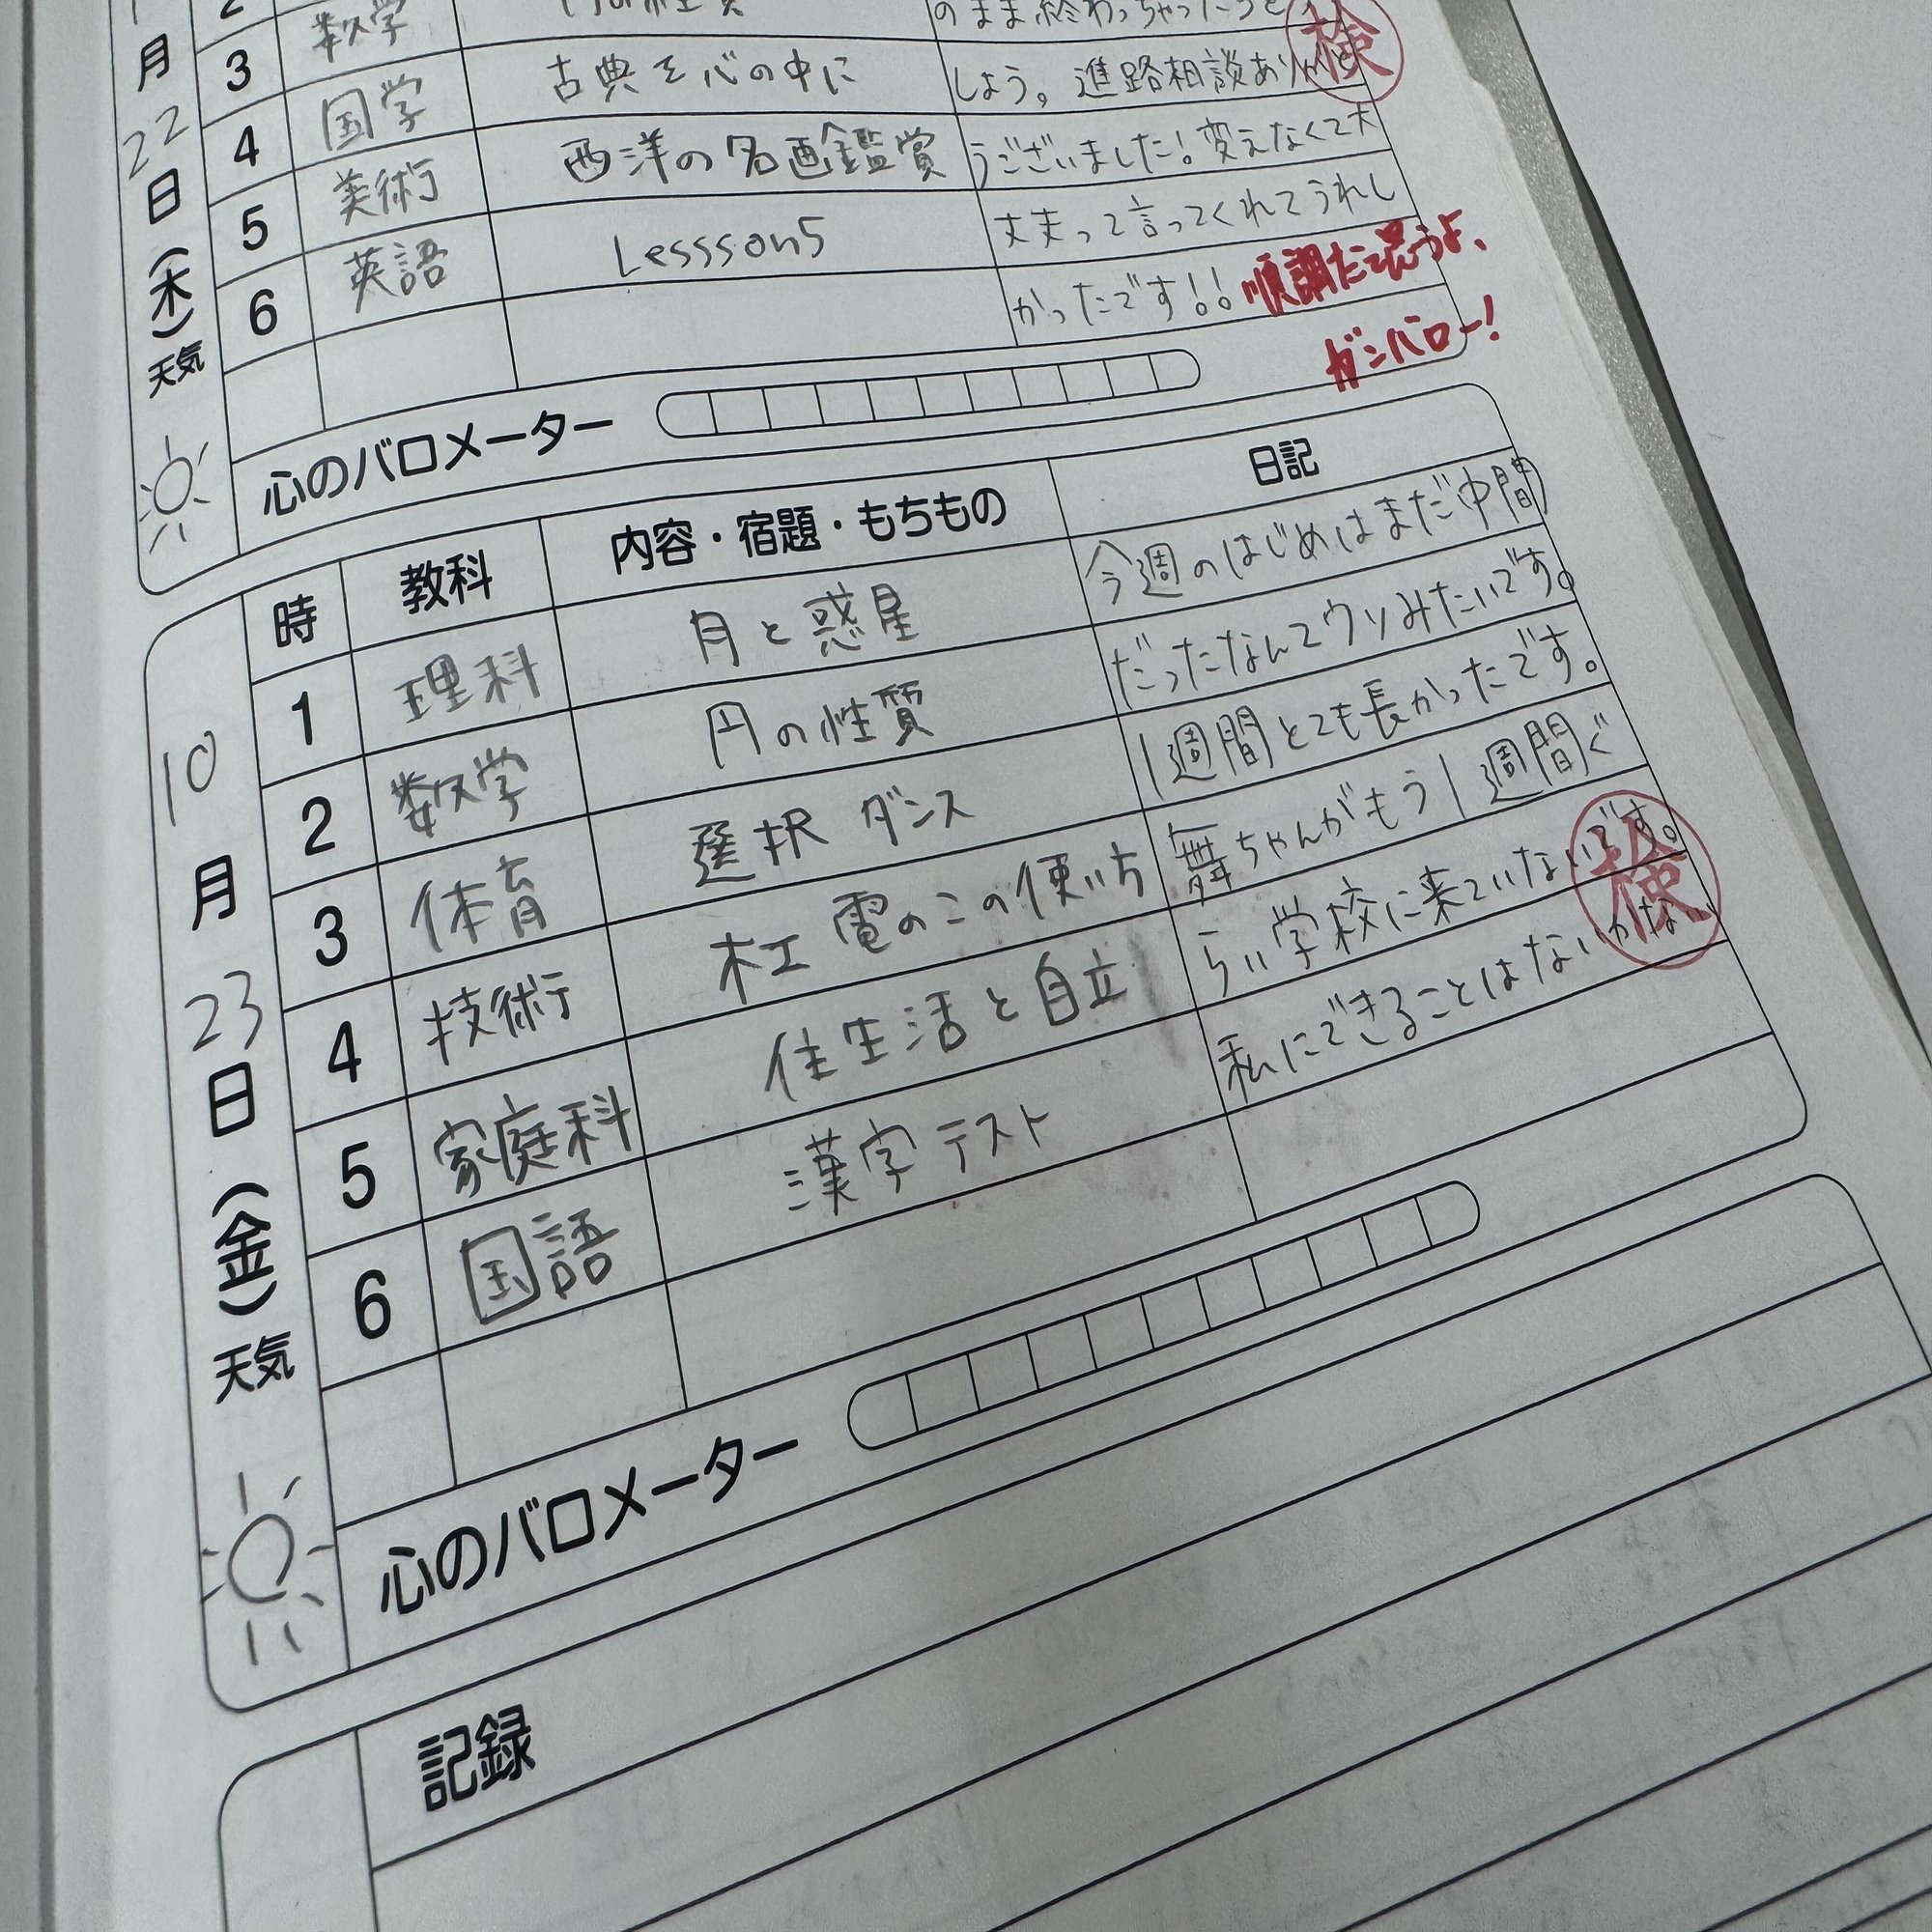 月
22
日
(木)
天気
3 数学
4 国学 古典を心の中に
5 美術 西洋の名画鑑賞
6 英語 Lessson5
のまま終わっちゃったらど
しょう。進路相談ありがと
うございました!変えなくて大
丈夫って言ってくれてうれし
かったです!!
順調だと思うよ、
ガンバロー!
検
心のバロメーター
10
月
23
日
(金)
天気
時 教科 内容・宿題・もちもの 日記
1 理科 月と惑星
2 数学 円の性質
3 体育 選択 ダンス
4 技術 木工 電のこの使い方
5 家庭科 住生活と自立
6 国語 漢字テスト
今週のはじめはまだ中間
だったなんてウソみたいです。
1週間とても長かったです。
舞ちゃんがもう1週間ぐ
らい学校に来ていないです。
私にできることはないかな
検
心のバロメーター
記録